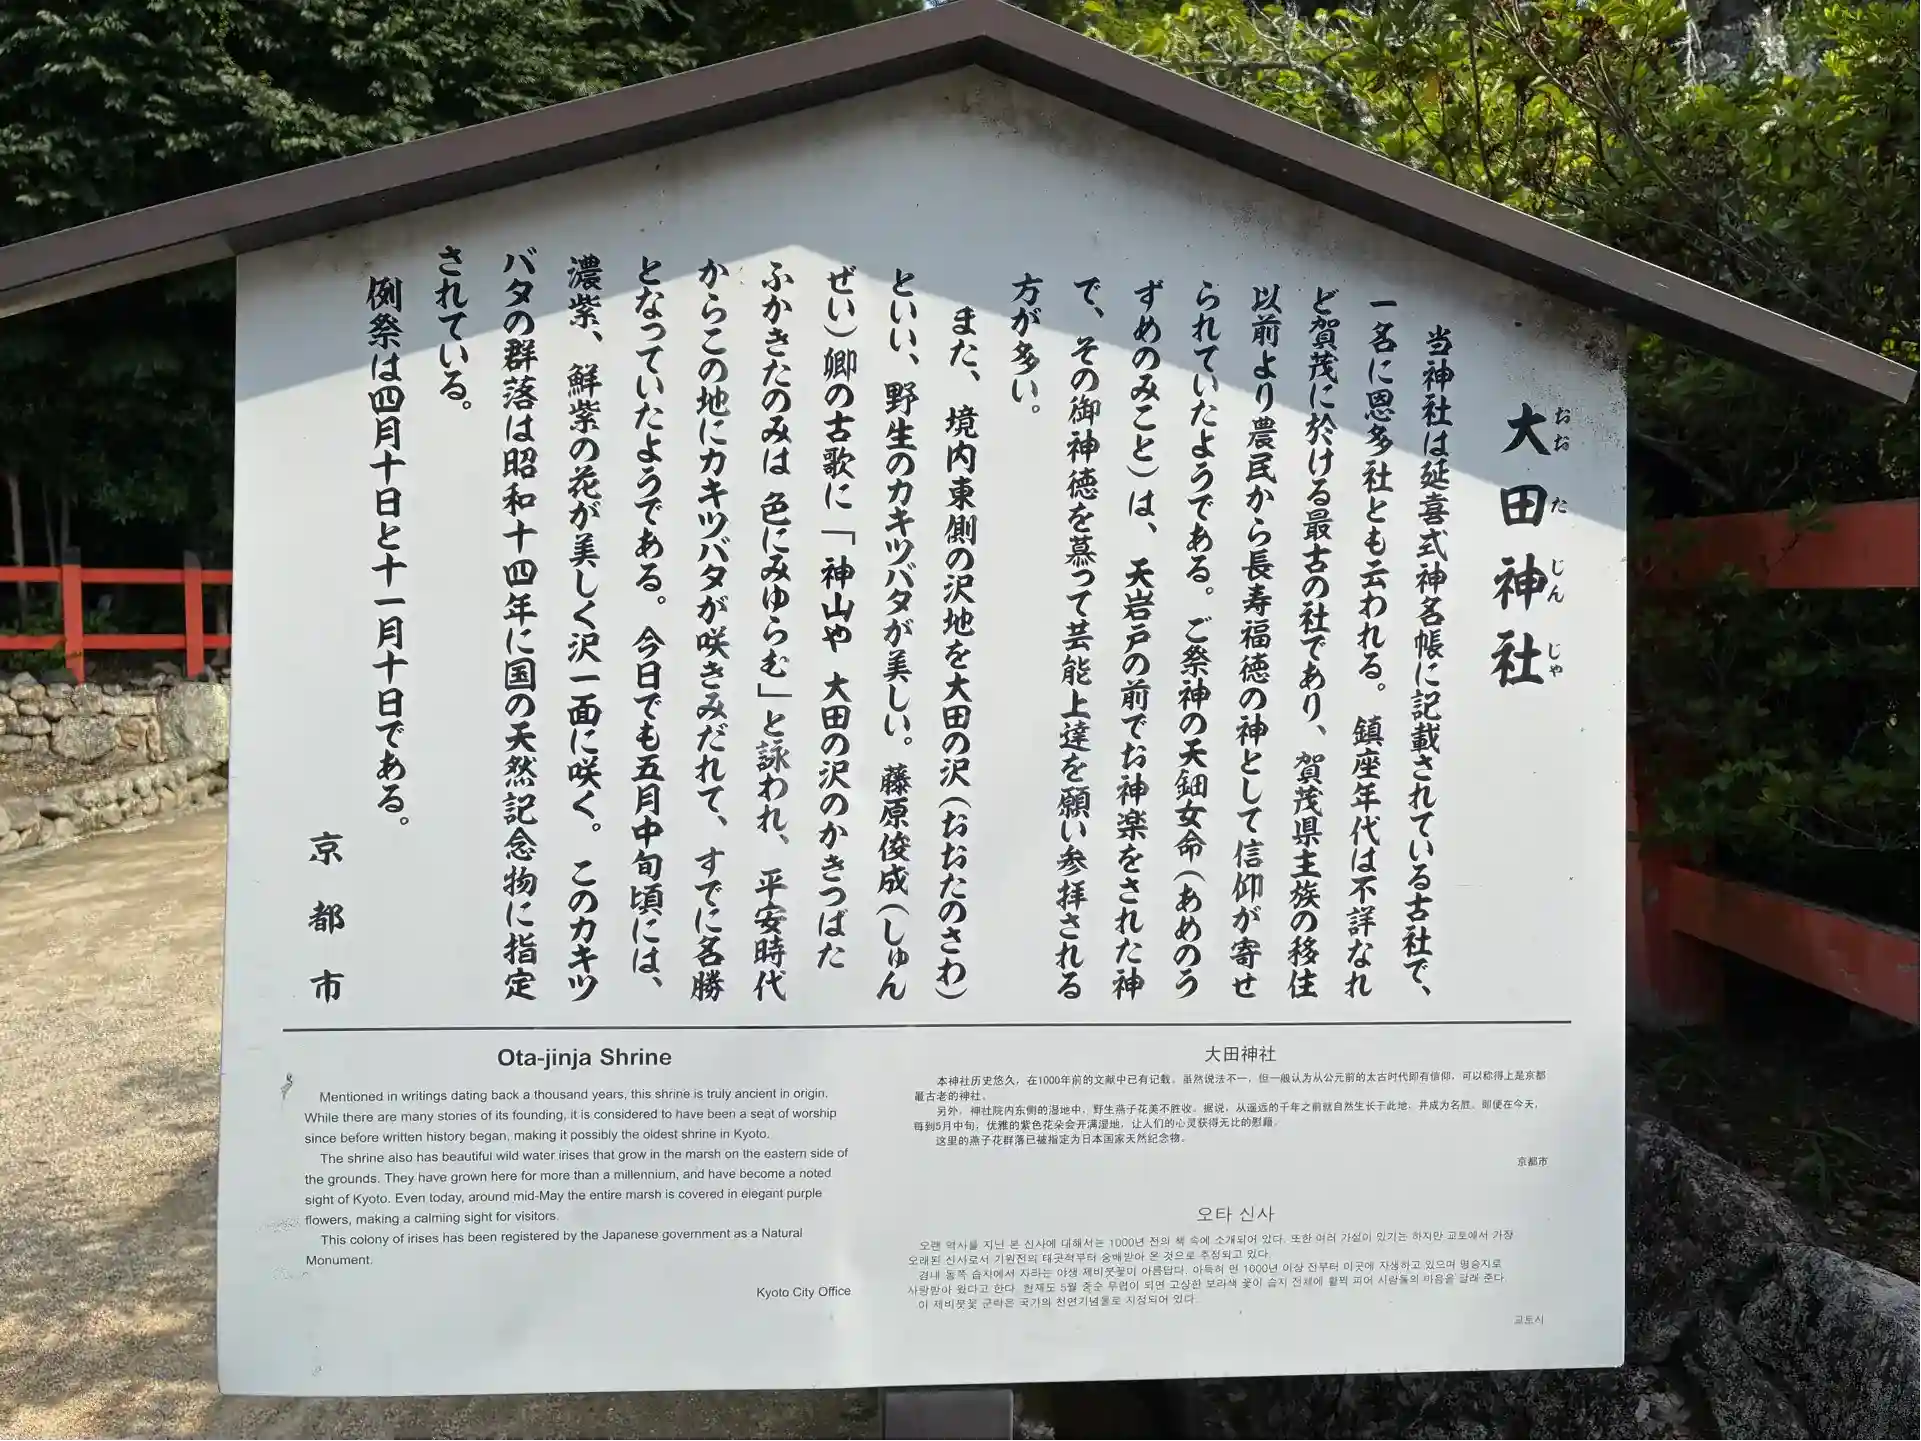 大田神社
おおたじんじゃ
当神社は延喜式神名帳に記載されている古社で、
一名に恩多社とも云われる。鎮座年代は不詳なれ
ど賀茂に於ける最古の社であり、賀茂県主族の移住
以前より農民から長寿福徳の神として信仰が寄せ
られていたようである。ご祭神の天鈿女命(あめのう
ずめのみこと)は、天岩戸の前でお神楽をされた神
で、その御神徳を慕って芸能上達を願い参拝される
方が多い。
また、境内東側の沢地を大田の沢(おおたのさわ)
といい、野生のカキツバタが美しい。藤原俊成(しゅん
ぜい)卿の古歌に「神山や 大田の沢のかきつばた
ふかきたのみは 色にみゆらむ」と詠われ、平安時代
からこの地にカキツバタが咲きみだれて、すでに名勝
となっていたようである。今日でも五月中旬頃には、
濃紫、鮮紫の花が美しく沢一面に咲く。このカキツ
バタの群落は昭和十四年に国の天然記念物に指定
されている。
例祭は四月十日と十一月十日である。
京都市
Ota-jinja Shrine
Mentioned in writings dating back a thousand years, this shrine is truly ancient in origin.
While there are many stories of its founding, it is considered to have been a seat of worship
since before written history began, making it possibly the oldest shrine in Kyoto.
The shrine also has beautiful wild water irises that grow in the marsh on the eastern side of
the grounds. They have grown here for more than a millennium, and have become a noted
sight of Kyoto. Even today, around mid-May the entire marsh is covered in elegant purple
flowers, making a calming sight for visitors.
This colony of irises has been registered by the Japanese government as a Natural
Monument.
Kyoto City Office
大田神社
本神社历史悠久，在1000年前的文献中已有记载。虽然说法不一，但一般认为从公元前的太古时代即有信仰，可以称得上是京都
最古老的神社。
另外，神社院内东侧的湿地中，野生燕子花美不胜收。据说，从遥远的千年之前就自然生长于此地，并成为名胜。即便在今天，
每到5月中旬，优雅的紫色花朵会开满湿地，让人们的心灵获得无比的慰藉。
这里的燕子花群落已被指定为日本国家天然纪念物。
京都市
오타 신사
오랜 역사를 지닌 본 신사에 대해서는 1000년 전의 책 속에 소개되어 있다. 또한 여러 가설이 있기는 하지만 교토에서 가장
오래된 신사로서 기원전의 태곳적부터 숭배받아 온 것으로 추정되고 있다.
경내 동쪽 습지에서 자라는 야생 제비붓꽃이 아름답다. 아득히 먼 1000년 이상 전부터 이곳에 자생하고 있으며 명승지로
사랑받아 왔다고 한다. 현재도 5월 중순 무렵이 되면 고상한 보라색 꽃이 습지 전체에 활짝 피어 사람들의 마음을 달래 준다.
이 제비붓꽃 군락은 국가의 천연기념물로 지정되어 있다.
교토시